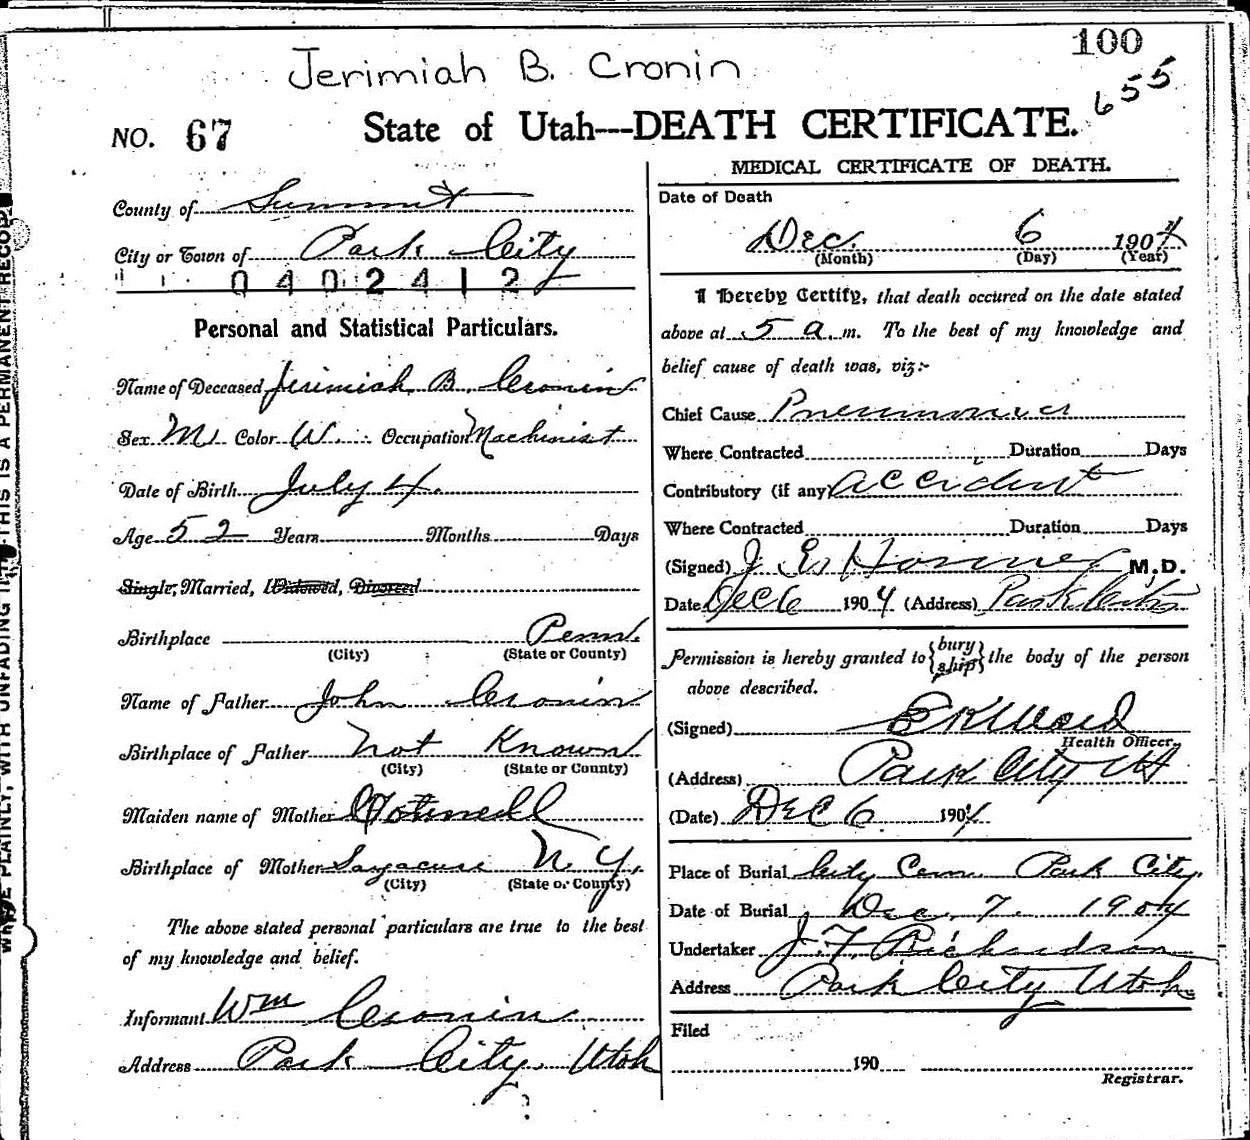 100
Jerimiah B. Cronin
655
NO. 67
State of Utah---DEATH CERTIFICATE.
County of Summit
City or Town of Park City
0402412
Personal and Statistical Particulars.
Name of Deceased Jerimiah B. Cronin
Sex M Color W Occupation Machinist
Date of Birth July 4.
Age 52 Years Months Days
Single, Married, Widowed, Divorced
Birthplace Penn.
(City) (State or County)
Name of Father John Cronin
Birthplace of Father Not Known
(City) (State or County)
Maiden name of Mother
Birthplace of Mother Sayacuse N.Y.
(City) (State or County)
The above stated personal particulars are true to the best
of my knowledge and belief.
Informant Wm Cronin
Address Park City, Utah
MEDICAL CERTIFICATE OF DEATH.
Date of Death
Dec. 6 1904
(Month) (Day) (Year)
I Hereby Certify, that death occured on the date stated
above at 5 a.m. To the best of my knowledge and
belief cause of death was, viz:-
Chief Cause Pneumonia
Where Contracted Duration Days
Contributory (if any) accident
Where Contracted Duration Days
(Signed) J. E. M.D.
Date Dec 6 1904 (Address) Park City
Permission is hereby granted to {bury ship} the body of the person
above described.
(Signed) E K Ward
Health Officer.
(Address) Park City Ut
(Date) Dec 6 1904.
Place of Burial City Cem. Park City.
Date of Burial Dec. 7. 1904
Undertaker J. F. Richardson
Address Park City Utah
Filed
190
Registrar.
THIS IS A PERMANENT RECORD
PLAINLY, WITH UNFADING